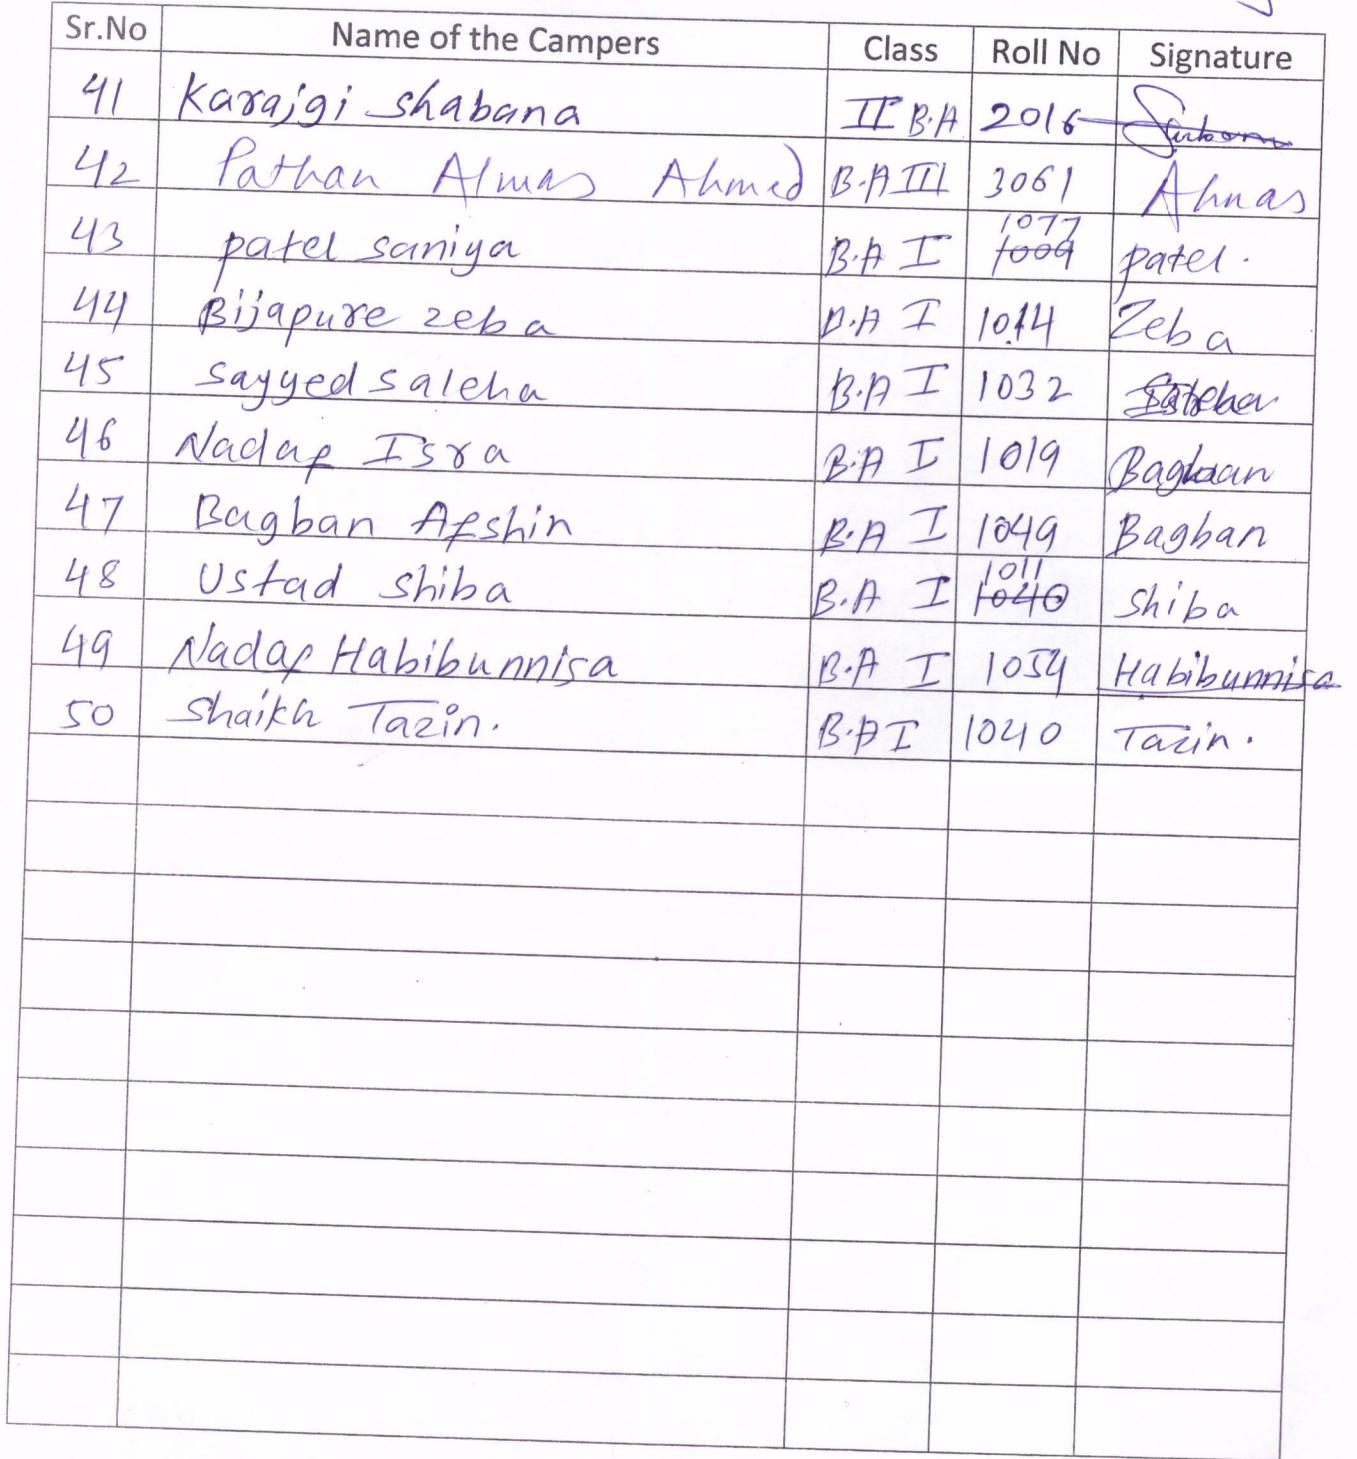 Sr.No Name of the Campers Class Roll No Signature
41 Karajgi shabana II B.A 2016
42 Pathan Almas Ahmed B.A III 3061 Almas
43 patel saniya B.A I 1077 1009 patel.
44 Bijapure zeba B.A I 1014 Zeba
45 sayyed saleha B.A I 1032 Saleha
46 Nadaf Isra B.A I 1019 Bagban
47 Bagban Afshin B.A I 1049 Bagban
48 Ustad shiba B.A I 1011 1040 shiba
49 Nadaf Habibunnisa B.A I 1054 Habibunnisa
50 Shaikh Tazin. B.A I 1040 Tazin.